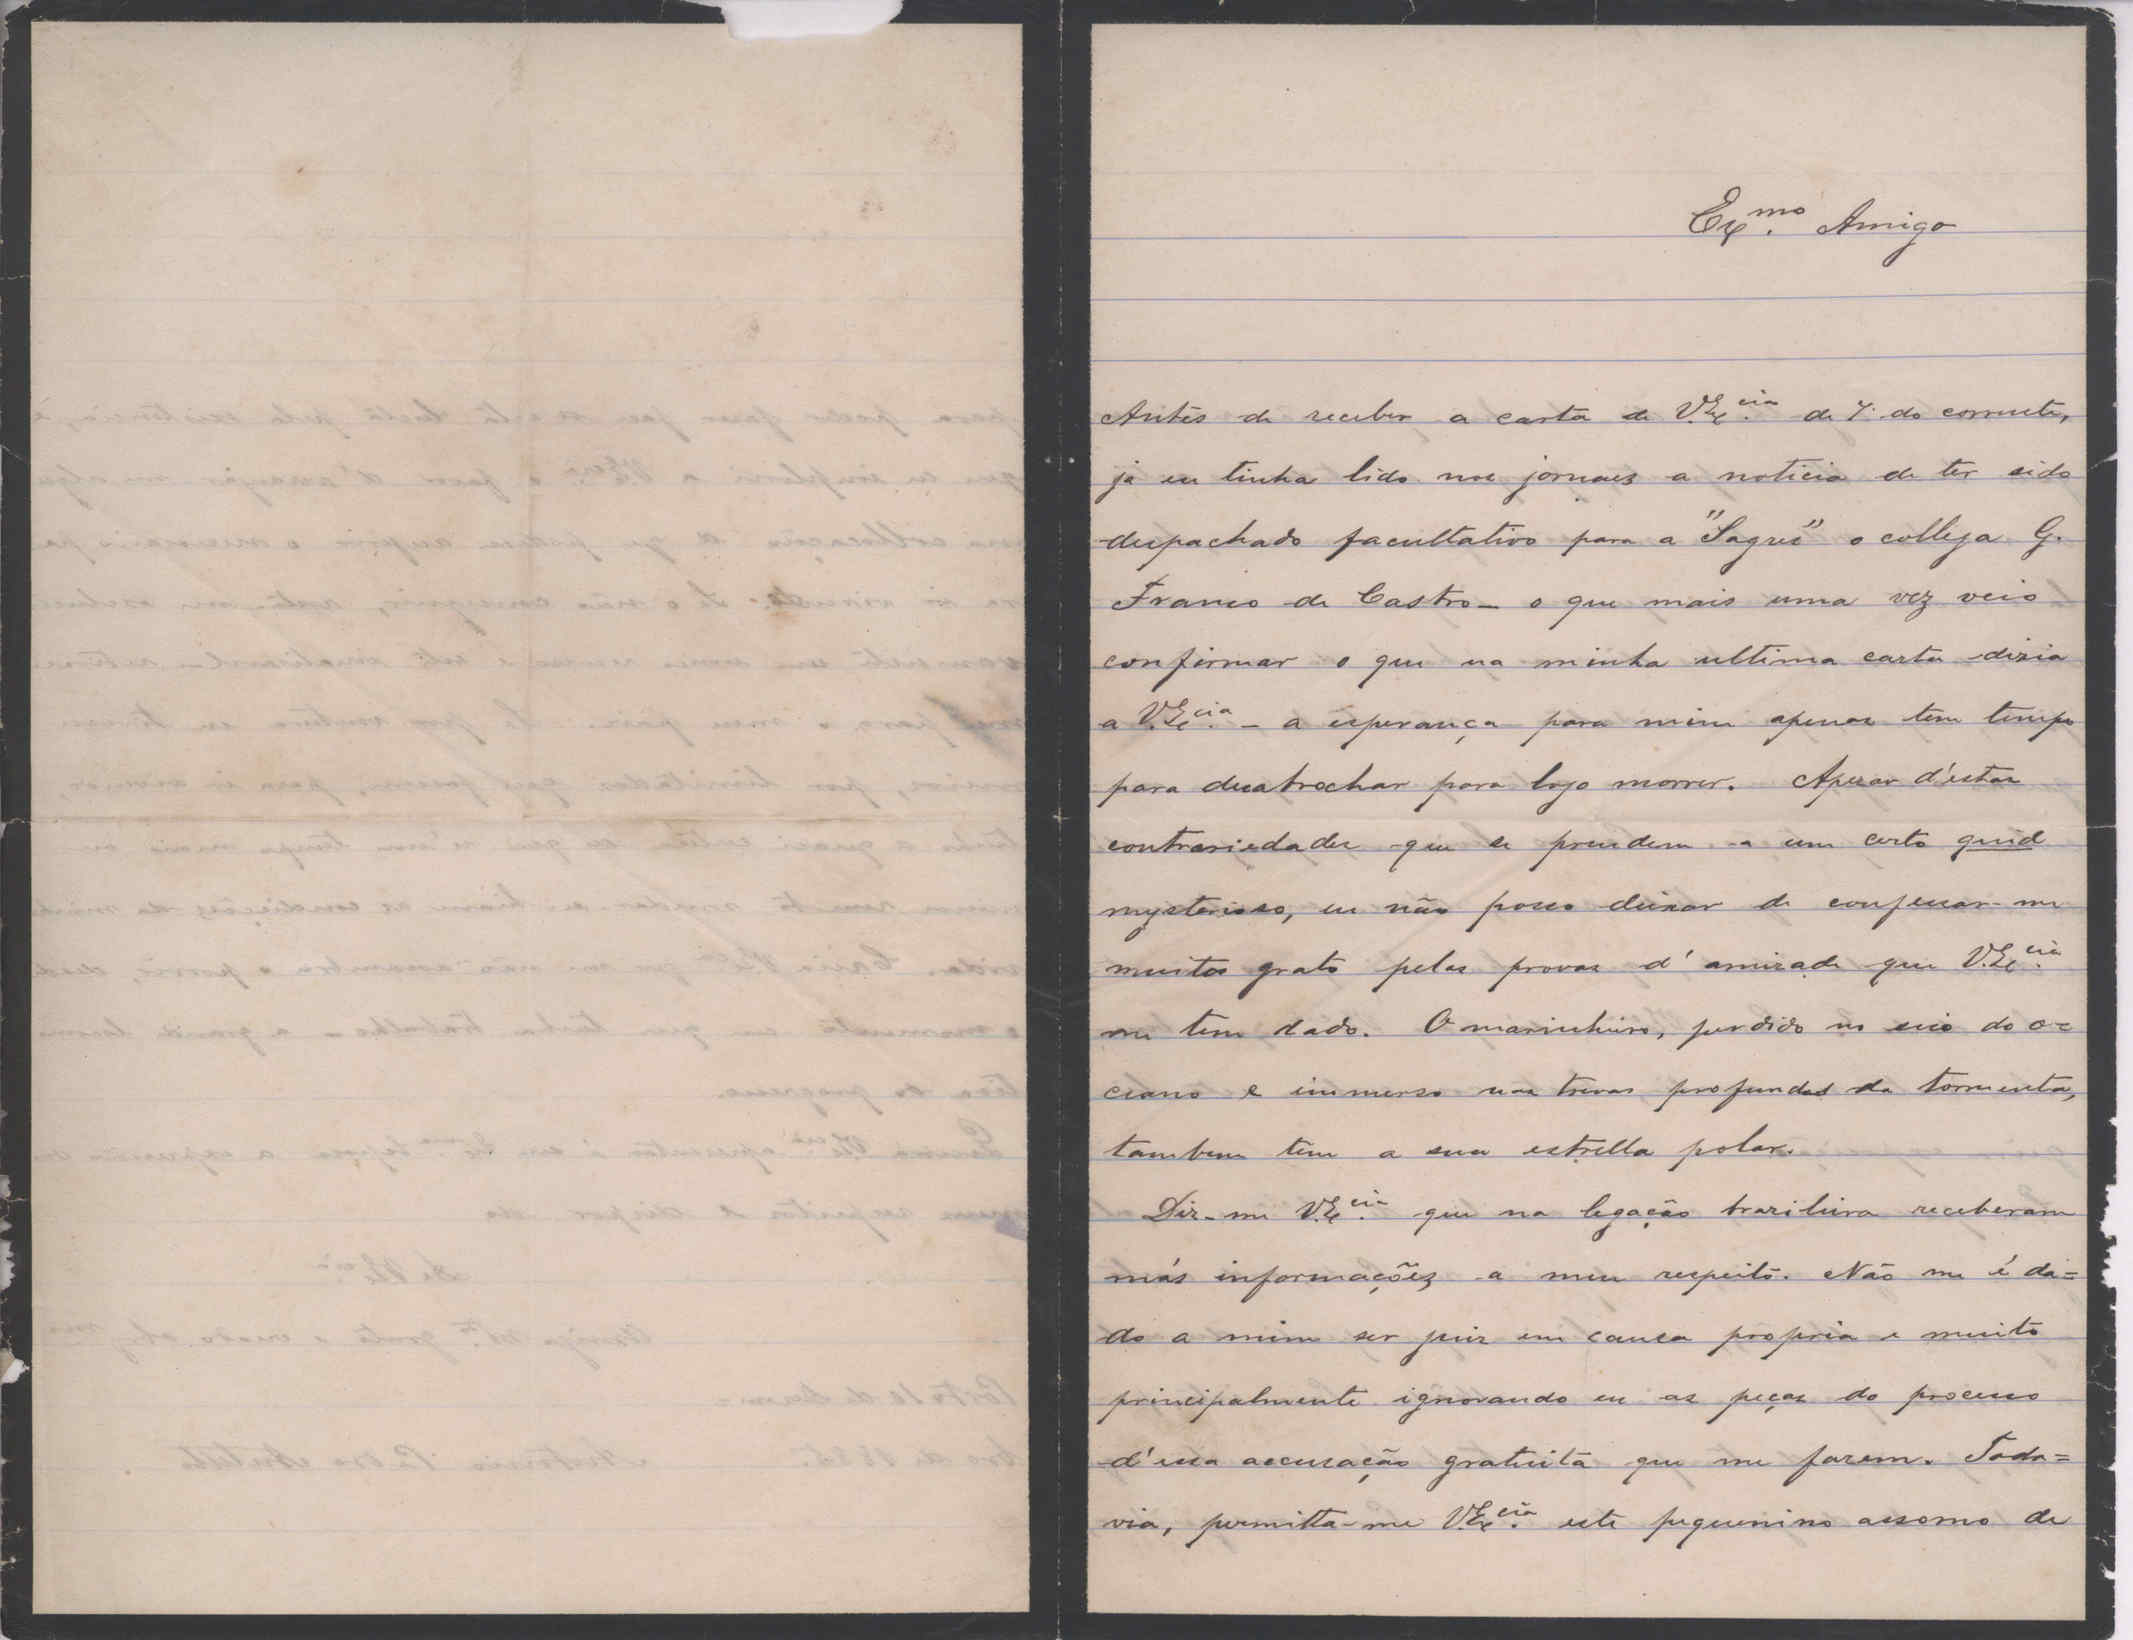 Ex.mo Amigo
Antes de receber a carta de V.Ex.cia de 7 do corrente,
ja eu tinha lido nos jornaes a noticia de ter sido
despachado facultativo para a "Sagres" o collega G.
Franco de Castro - o que mais uma vez veio
confirmar o que na minha ultima carta dizia
a V.Ex.cia - a esperança para mim apenas tem tempo
para desabrochar para logo morrer. Apezar d'estas
contrariedades que se prendem a um certo quid
mysterioso, eu não posso deixar de confessar-me
muito grato pelas provas d'amizade que V.Ex.cia
me tem dado. O marinheiro, perdido no seio do o=
ceano e immerso nas trevas profundas da tormenta,
tambem tem a sua estrella polar.
Diz-me V.Ex.cia que na legação brazileira receberam
más informações a meu respeito. Não me é da=
do a mim ser juiz em causa propria e muito
principalmente ignorando eu as peças do processo
d'essa accusação gratuita que me fazem. Toda=
via, permitta-me V.Ex.cia este pequenino assomo de